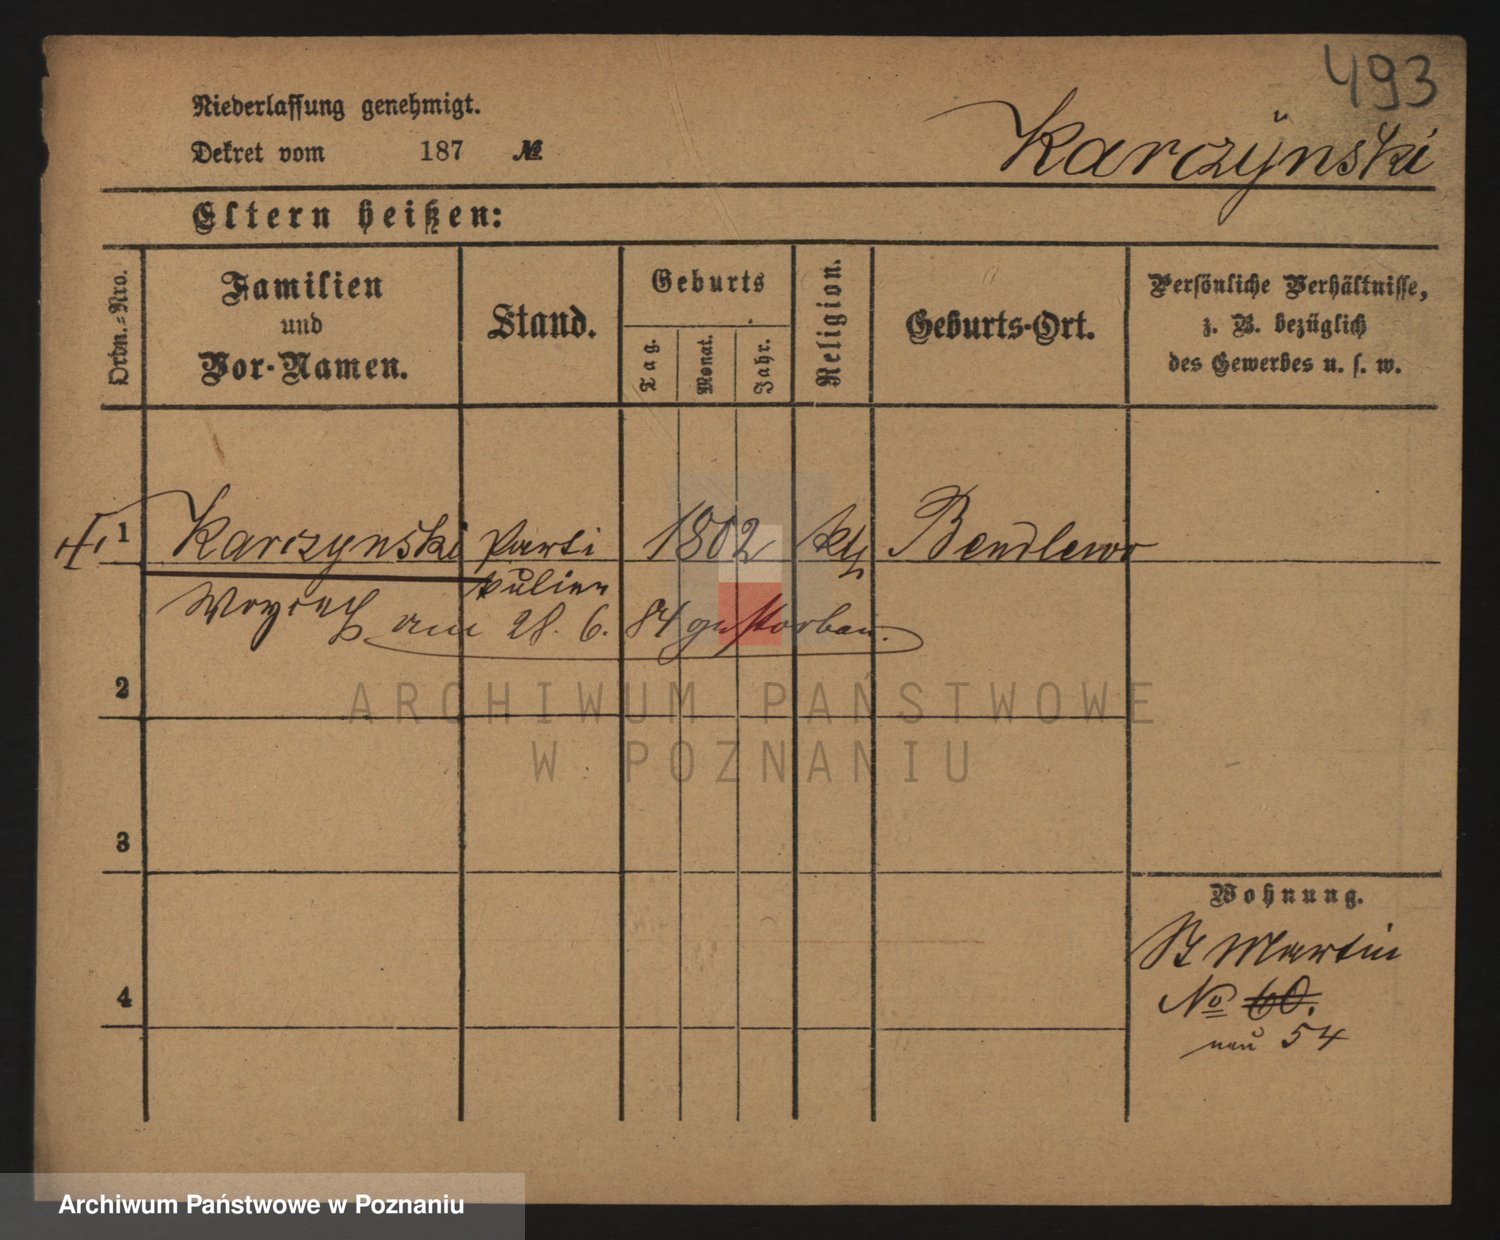 493
Niederlassung genehmigt.
Dekret vom 187 №
Karczÿnski
Eltern heißen:
Ordn.=Nro.
Familien
und
Vor-Namen.
Stand.
Geburts
Tag.
Monat.
Jahr.
Religion.
Geburts-Ort.
Persönliche Verhältnisse,
z. B. bezüglich
des Gewerbes u. s. w.
1 Karczynski Parti 1802 kth Bendlewo
kulier
am 28. 6. 84 gestorben.
2
ARCHIWUM PAŃSTWOWE
W POZNANIU
3
Wohnung.
St Martin
4
No 60.
neu 54
Archiwum Państwowe w Poznaniu